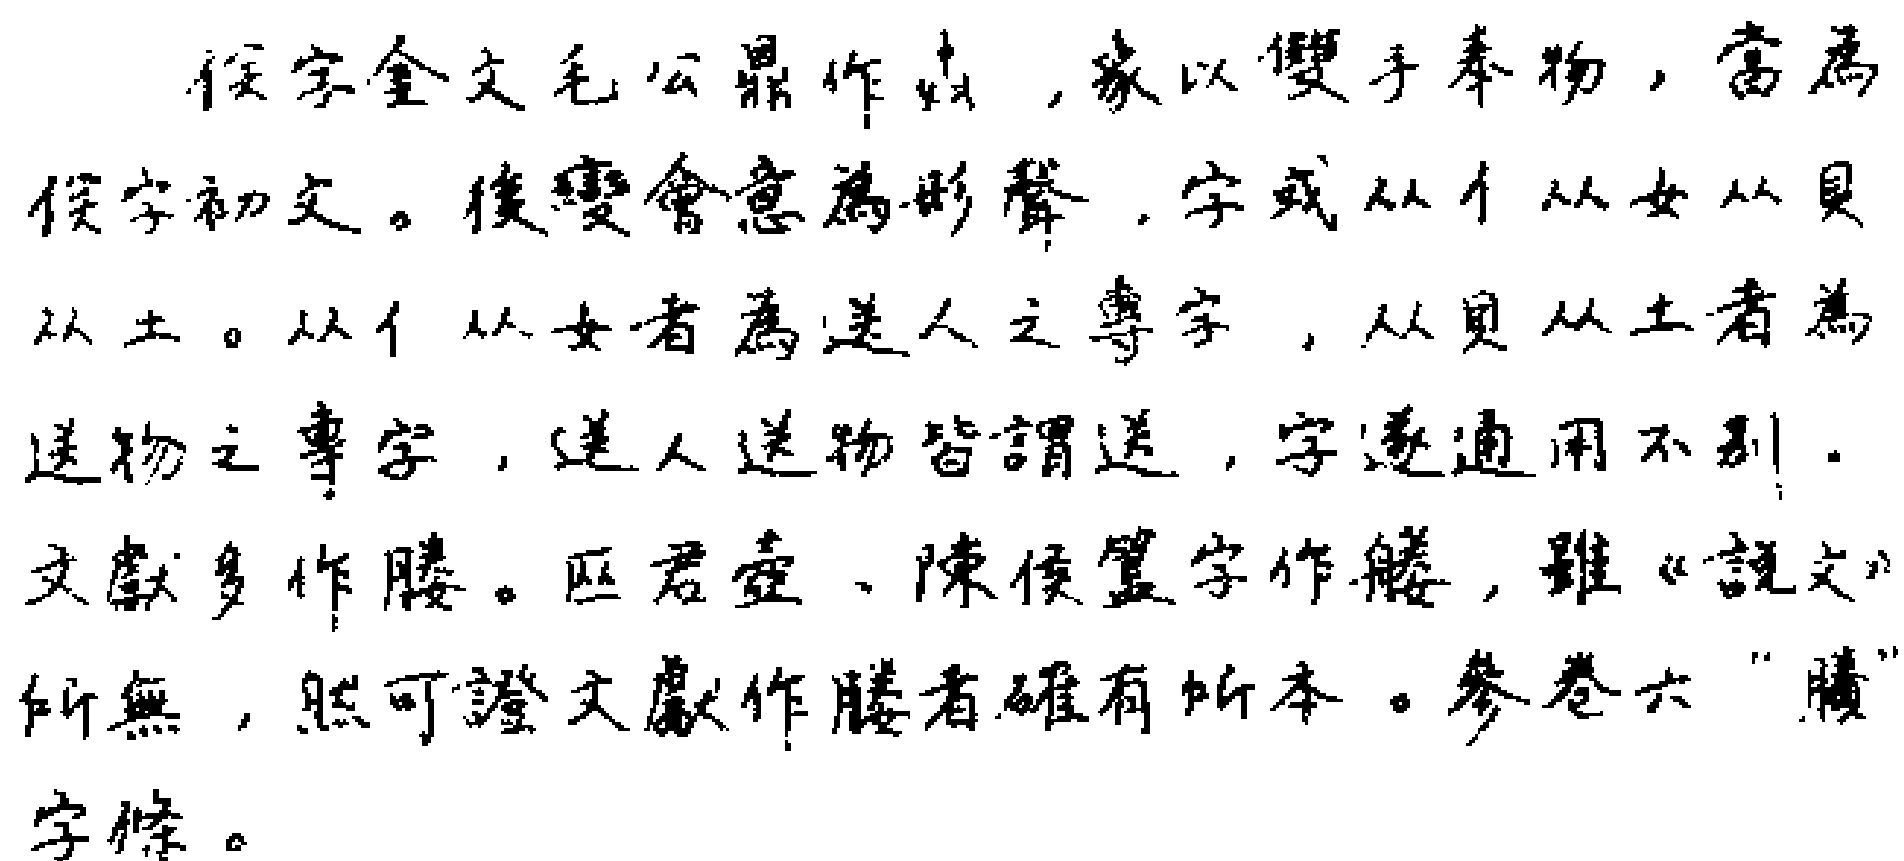 俟字金文毛公鼎作，象以雙手奉物，當為
俟字初文。後變會意為形聲，字或从亻从女从貝
从土。从亻从女者為送人之專字，从貝从土者為
送物之專字，送人送物皆謂送，字遂通用不別．
文獻多作媵。匹君壺、陳侯簋字作媵，雖《說文》
所無，然可證文獻作媵者確有所本。參卷六“賸”
字條。